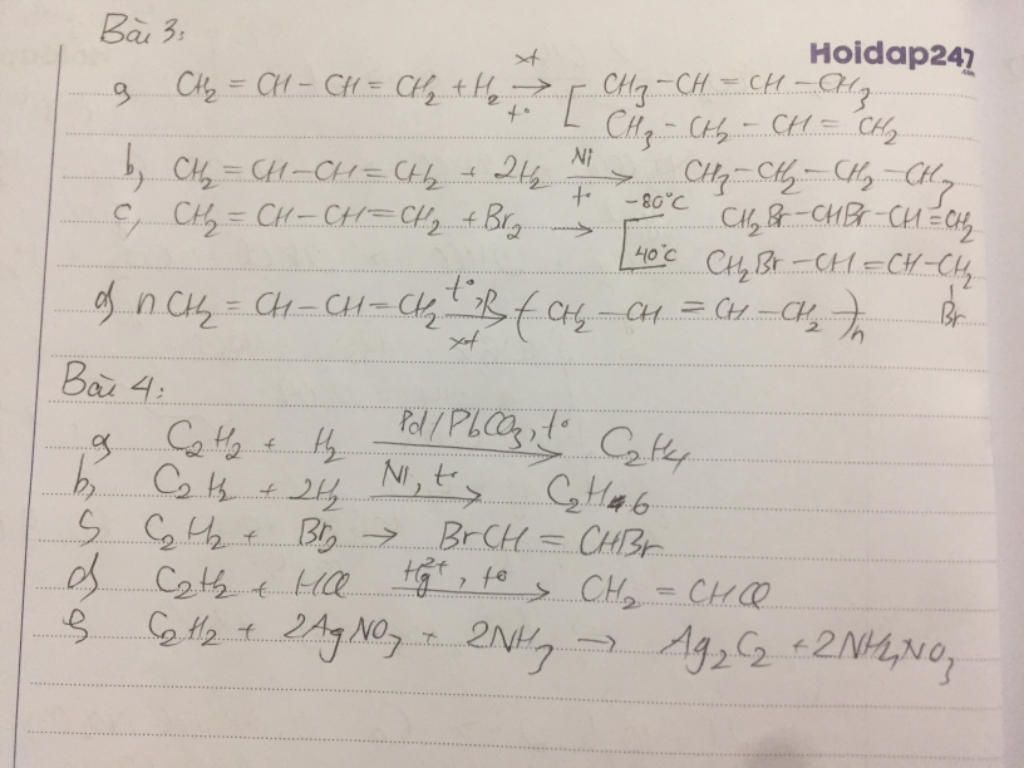 Bài 3:
Hoidap247.com
a, CH₂ = CH – CH = CH₂ + H₂ →(xt, t°) [ CH₃ – CH = CH – CH₃
CH₃ – CH₂ – CH = CH₂
b, CH₂ = CH – CH = CH₂ + 2H₂ →(Ni, t°) CH₃ – CH₂ – CH₂ – CH₃
c, CH₂ = CH – CH = CH₂ + Br₂ → [ -80°C CH₂Br – CHBr – CH = CH₂
40°C CH₂Br – CH = CH – CH₂
Br
d, nCH₂ = CH – CH = CH₂ →(t°, P, xt) ( CH₂ – CH = CH – CH₂ )n
Bài 4:
a, C₂H₂ + H₂ →(Pd/PbCO₃, t°) C₂H₄
b, C₂H₂ + 2H₂ →(Ni, t°) C₂H₆
c, C₂H₂ + Br₂ → BrCH = CHBr
d, C₂H₂ + HCl →(Hg²⁺, t°) CH₂ = CHCl
e, C₂H₂ + 2AgNO₃ + 2NH₃ → Ag₂C₂ + 2NH₄NO₃